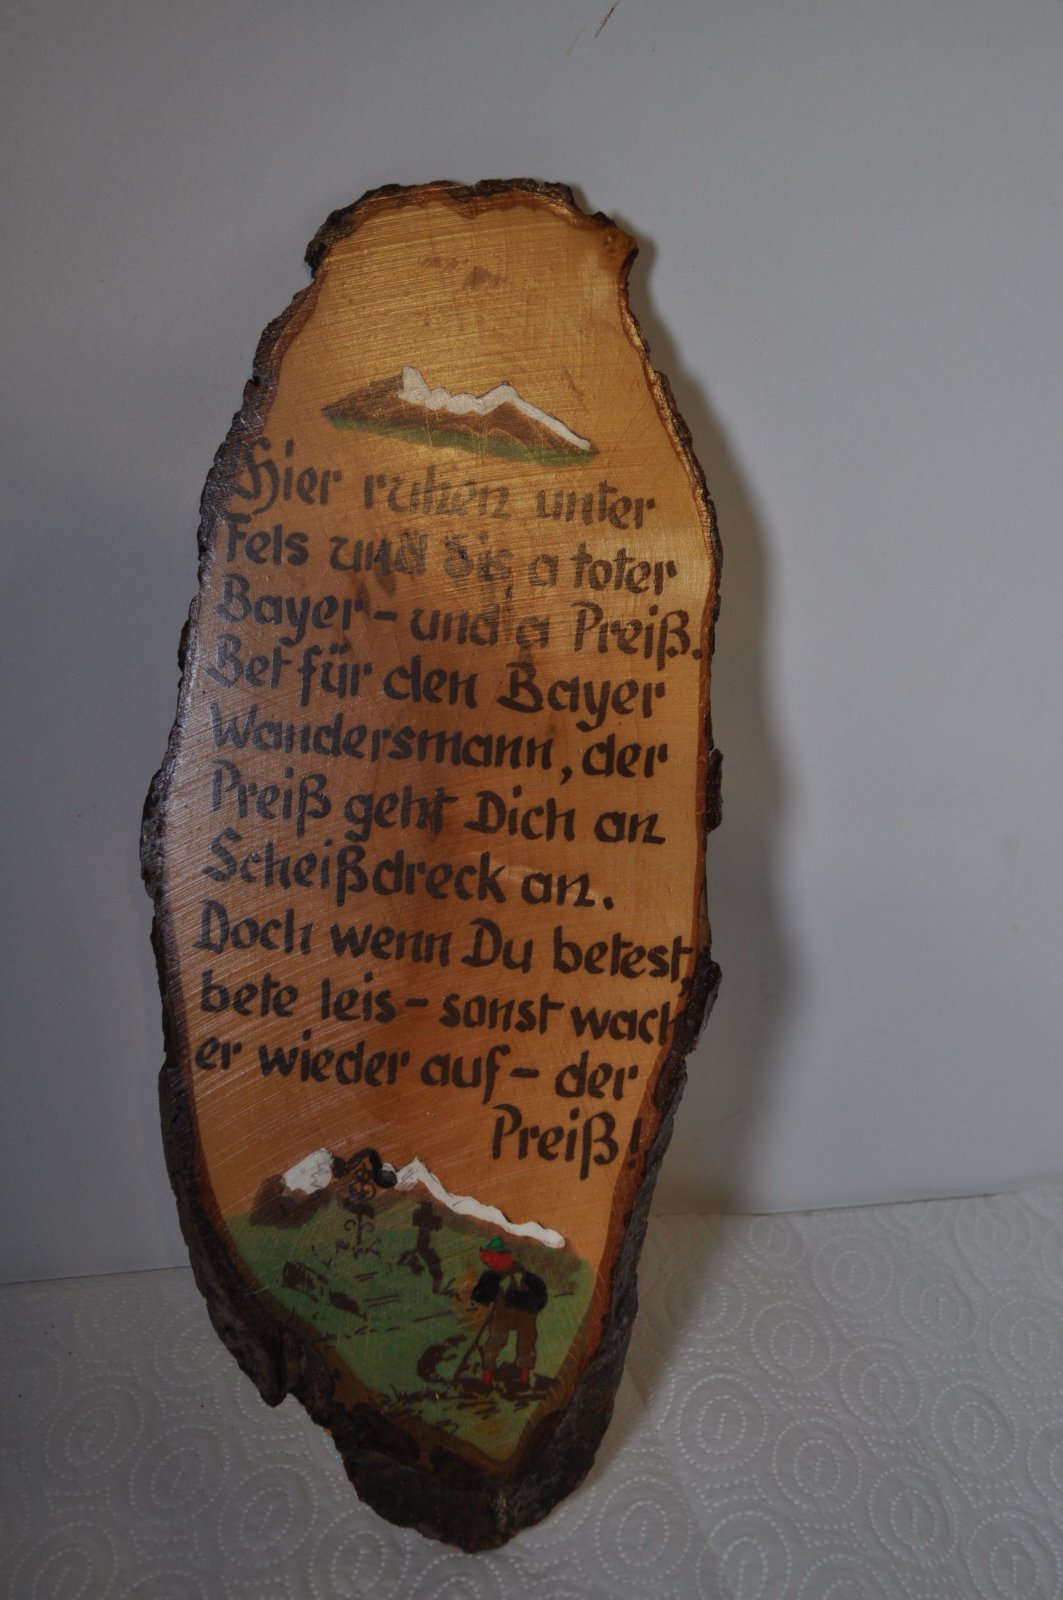 Hier ruhen unter
Fels und Eis a toter
Bayer - und a Preiß.
Bet für den Bayer
Wandersmann, der
Preiß geht Dich an
Scheißdreck an.
Doch wenn Du betest,
bete leis - sonst wach
er wieder auf - der
Preiß!